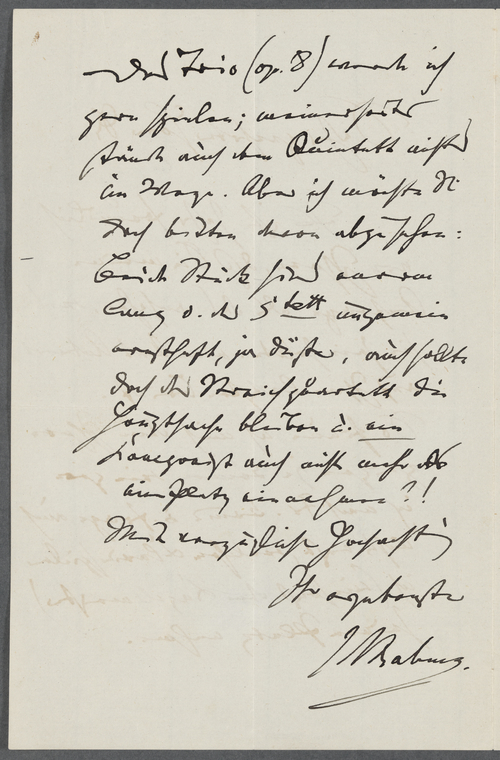 Das Trio (op. 8) werde ich
gern spielen; meinerseits
stände auch dem Quintett nichts
im Wege. Aber ich möchte Sie
doch bitten davon abzusehen:
Beide Stücke sind
lang u. das 5tett ungemein
ernsthaft, ja düster, auch sollte
doch das Streichquartett die
Hauptsache bleiben u. ein
Claviergeist auch nicht mehr als
einen Platz einnehmen?!
Mit vorzüglicher Hochachtung
Ihr ergebenster
J Brahms.